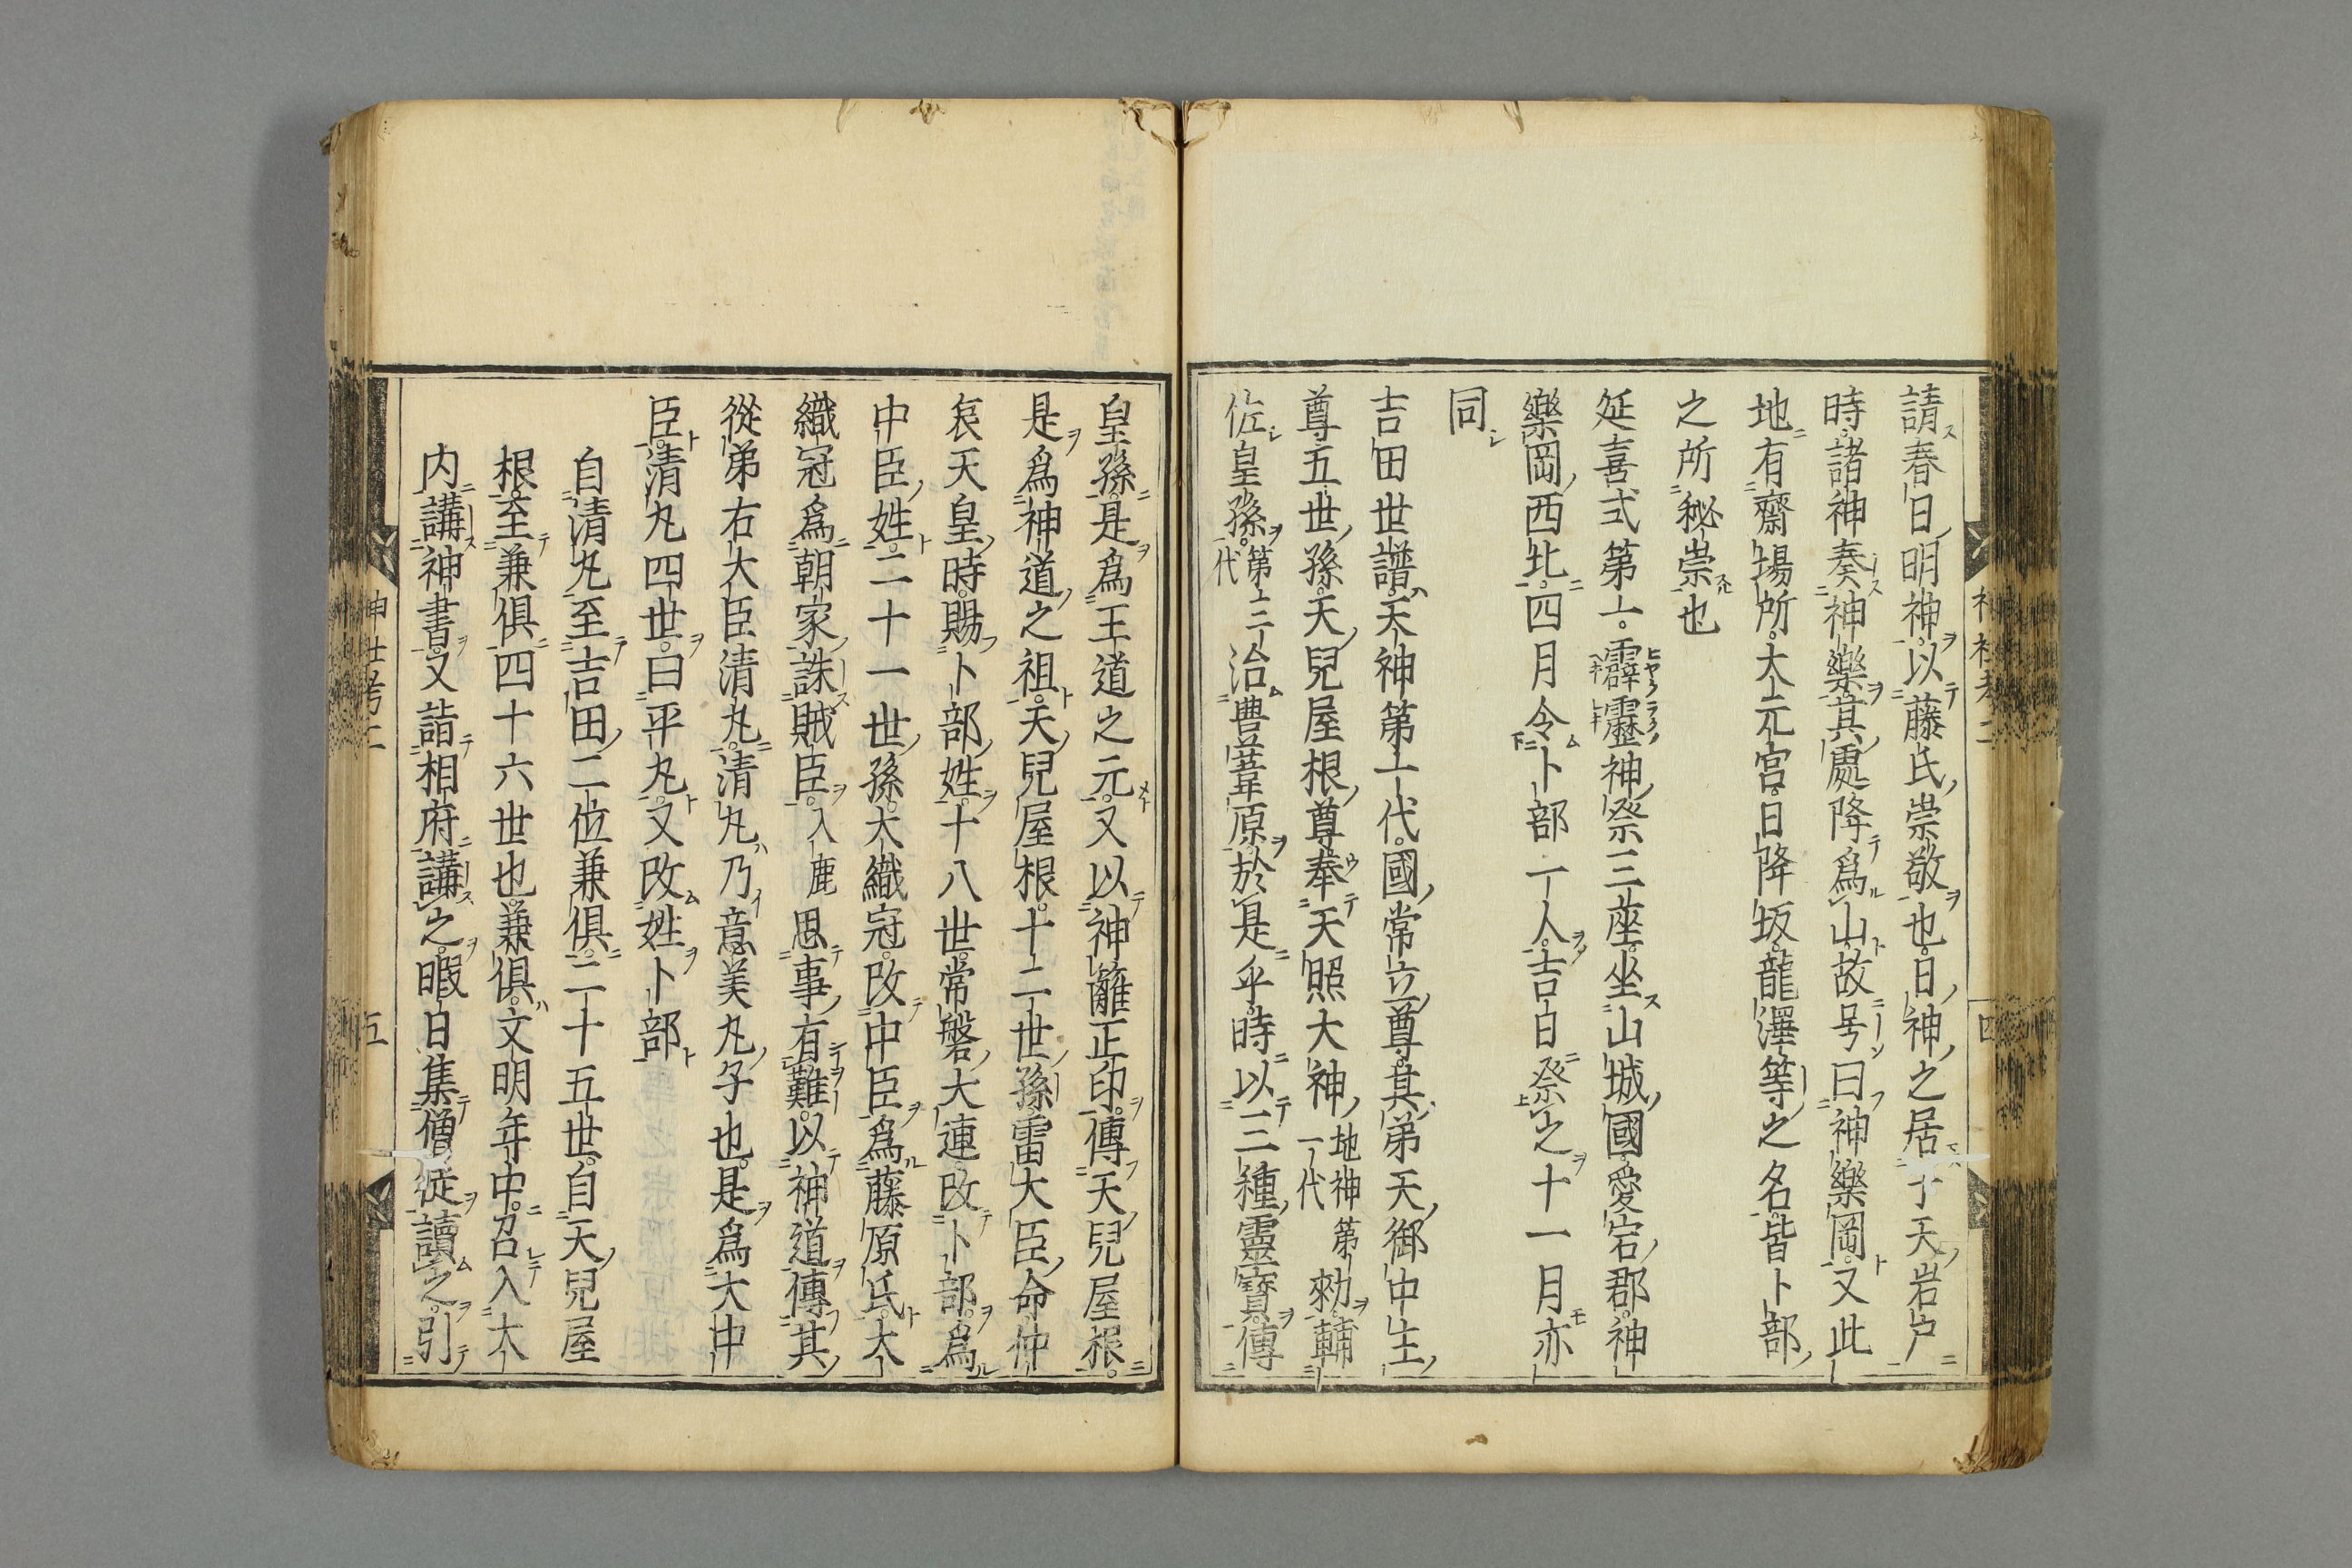 請春日明神。以藤氏崇敬也。日神之居于天岩戸
時。諸神奏神樂。其處降爲山。故号曰神樂岡。又此
地有齋場所。大元宮。日降坂。龍澤等之名。皆卜部
之所秘崇也
延喜式第一。霹靂神祭三座。坐山城國愛宕郡神
樂岡西北。四月令卜部一人。吉日祭之。十一月亦
同
吉田世譜。天神第一代。國常立尊。其弟天御中主
尊五世孫。天兒屋根尊。奉天照大神地神第一代勑。輔
佐皇孫。第三代治豊葦原。於是乎時。以三種靈寶。傳
皇孫。是爲王道之元。又以神籬正印。傳天兒屋根。
是爲神道之祖。天兒屋根。十二世孫。雷大臣命。仲
哀天皇時。賜卜部姓。十八世。常磐大連。改卜部。爲
中臣姓。二十一世孫。大織冠。改中臣。爲藤原氏。大
織冠爲朝家。誅賊臣。入鹿思事有難。以神道。傳其
從弟右大臣清丸。清丸乃意美丸子也。是爲大中
臣。清丸四世。曰平丸。又改姓卜部
自清丸至吉田二位兼俱。二十五世。自天兒屋
根至兼俱。四十六世也。兼俱。文明年中。召入大
内。講神書。又詣相府。講之。暇日集僧徒。讀之。引
神社考二
四
神社考二
五